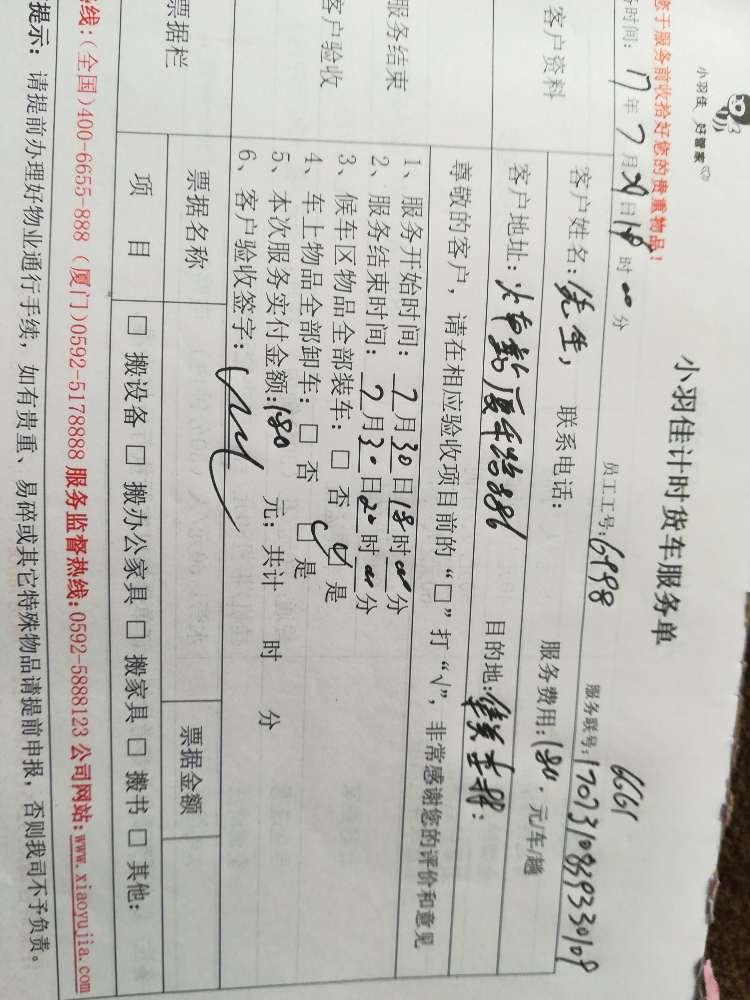 小羽佳 好管家
小羽佳计时货车服务单
6661
您于服务前收拾好您的贵重物品!
时间: 17年7月30日18时00分 员工工号: 6998 服务联号:
客户资料
客户姓名: 先生, 联系电话: 服务费用: 180.元/车/趟
客户地址: 目的地:
服务结束
客户验收
尊敬的客户，请在相应验收项目前的“□”打“√”，非常感谢您的评价和意见
1、服务开始时间: 7月30日18时00分
2、服务结束时间: 7月30日20时00分
3、候车区物品全部装车: □ 否 ☑ 是
4、车上物品全部卸车: □ 否 □ 是
5、本次服务实付金额: 180 元; 共计 时 分
6、客户验收签字:
票据栏
票据名称 票据金额
项 目 □ 搬设备 □ 搬办公家具 □ 搬家具 □ 搬书 □ 其他:
热线: (全国)400-6655-888 (厦门)0592-5178888 服务监督热线:0592-5888123 公司网站:www.xiaoyujia.com
提示: 请提前办理好物业通行手续，如有贵重、易碎或其它特殊物品请提前申报，否则我司不予负责。